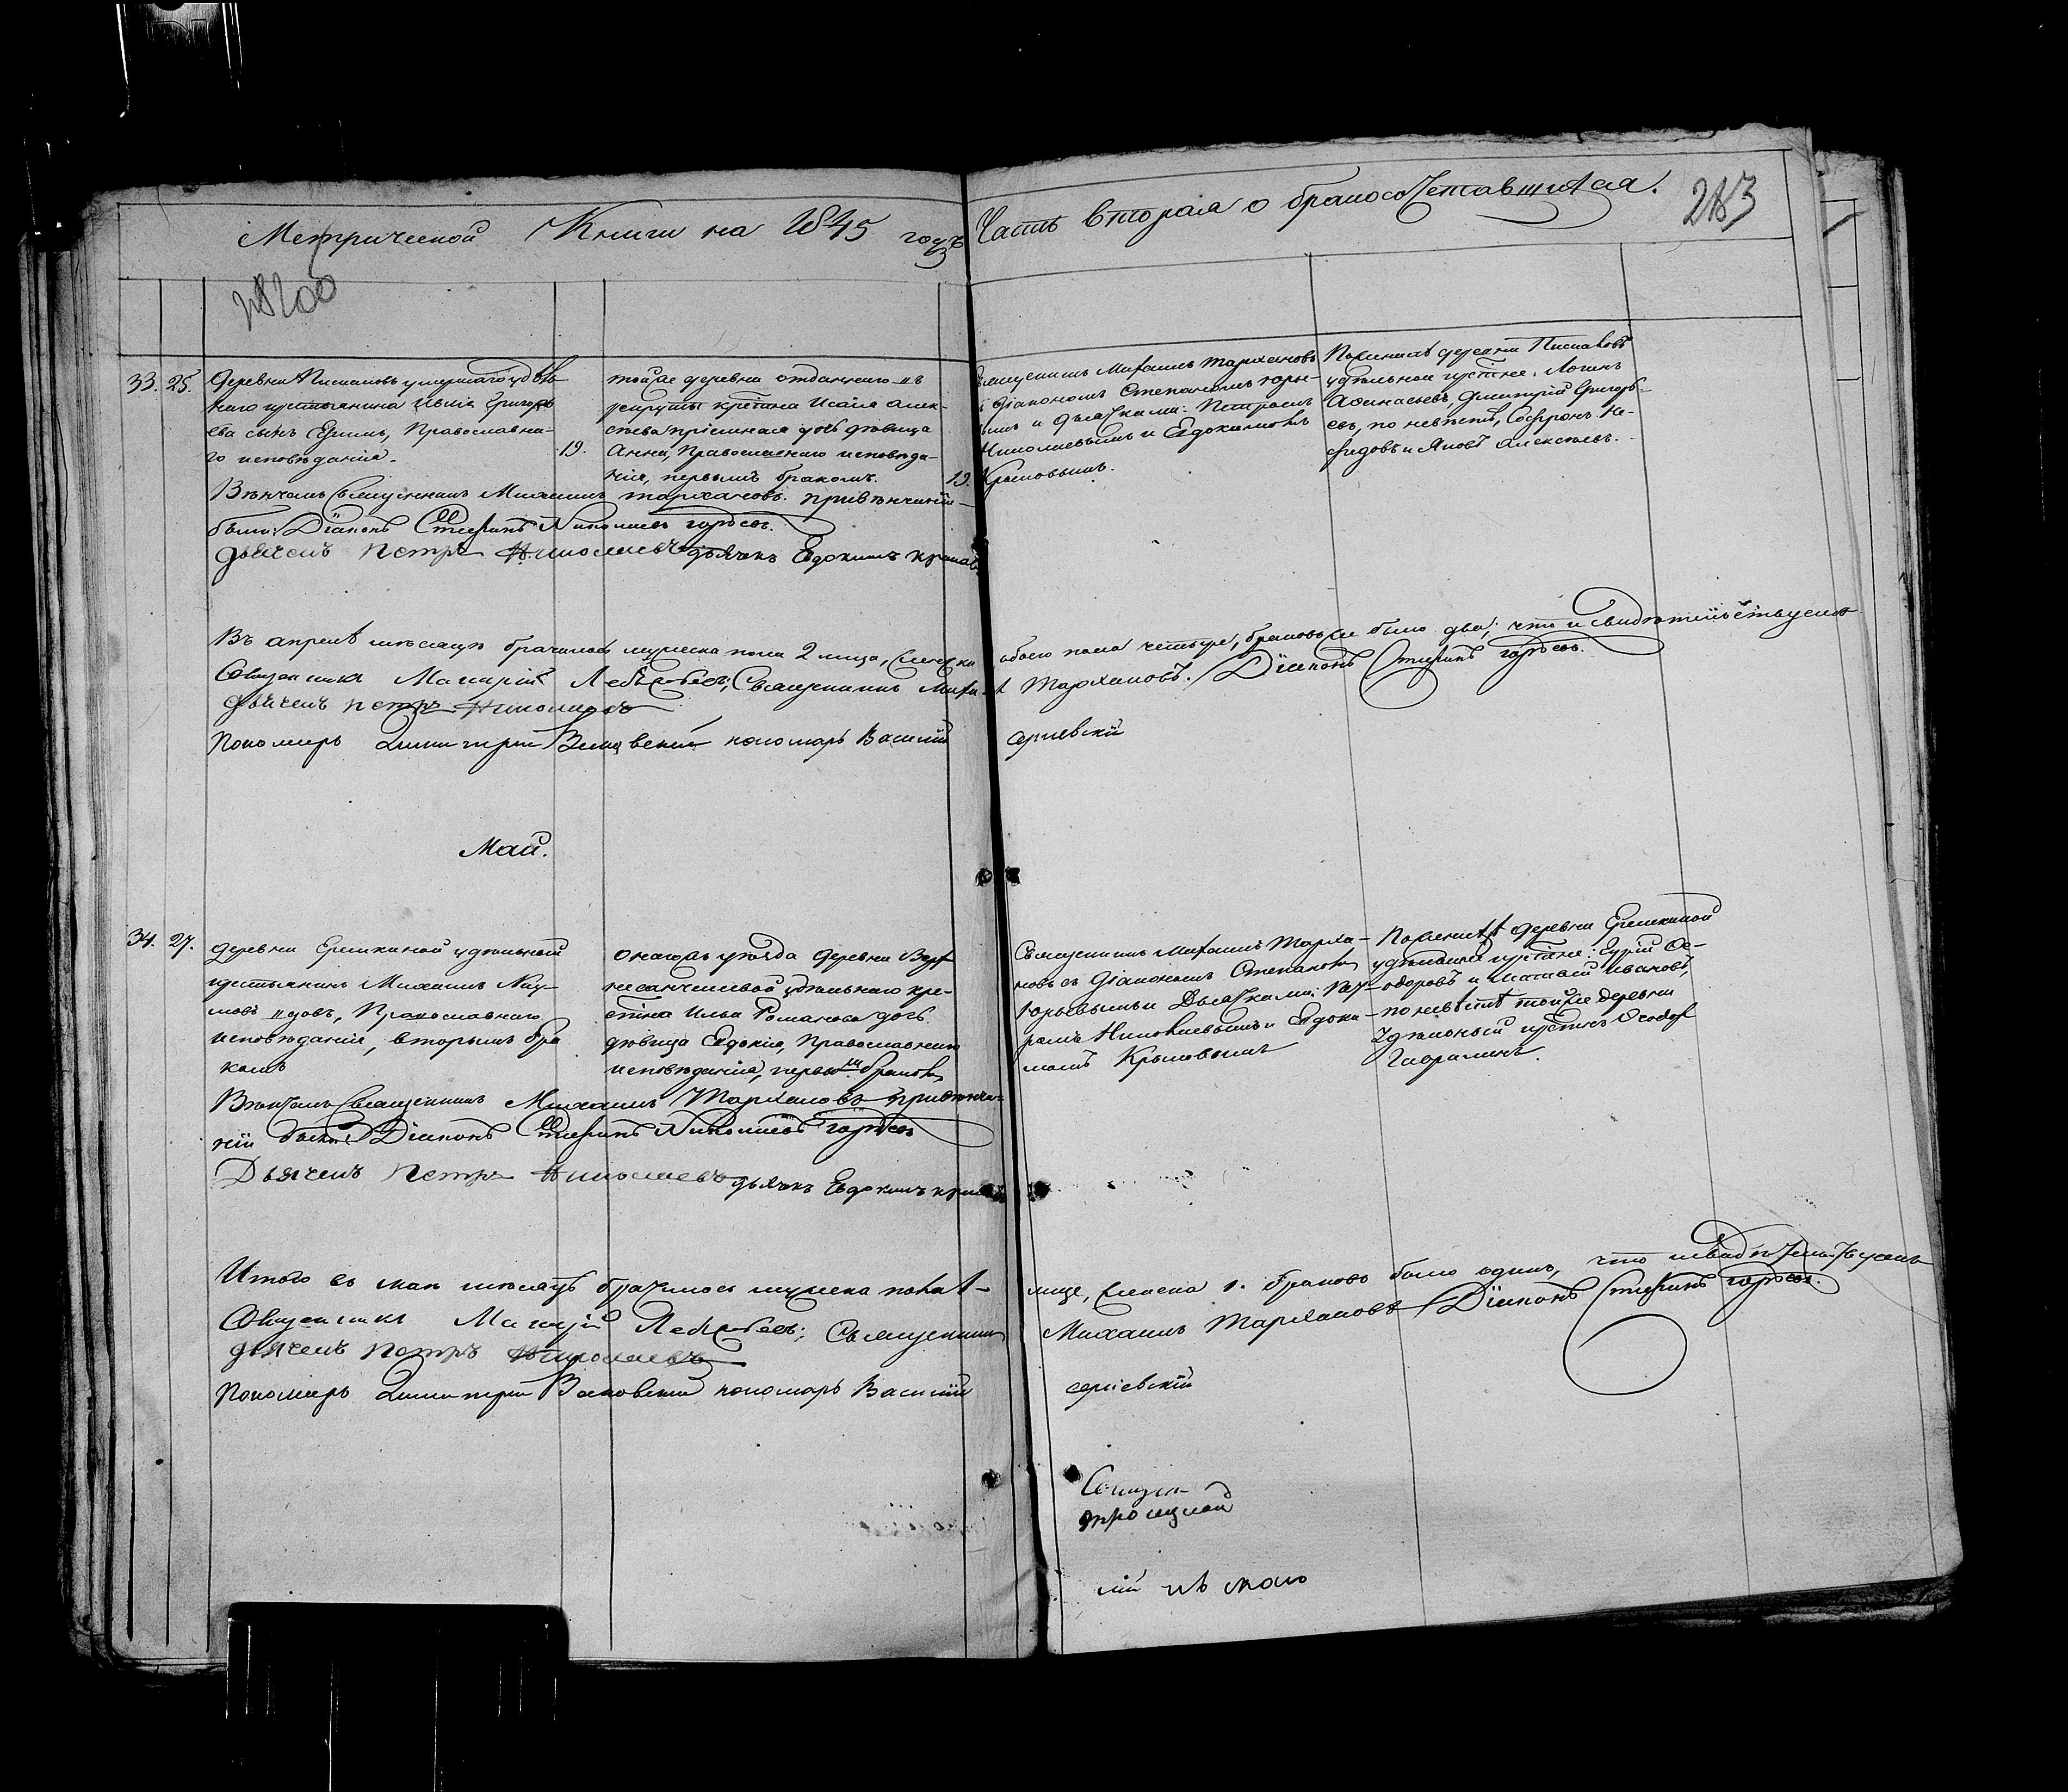 Метрической Книги на 1845 годъ
Часть вторая о бракосочетавшихся.
283
33. 25.
Деревни умершаго удѣль-
наго крестьянина Григорь
ева сынъ Ефимъ, Православна-
го исповѣданія.
19.
тойже деревни отданнаго въ
рекруты крестьна Исаія Алек-
сѣева пріемная дочь дѣвица
Анна, Православнаго исповѣда-
нія, первымъ бракомъ.
19.
Священникъ Михаилъ Тархановъ
съ Діакономъ Степаномъ Горь-
евымъ и Дьячками: Петромъ
Николаевымъ и Евдокимомъ
Крыловымъ.
По женихѣ деревни
удѣльные крстьне: Логинъ
Аѳанасьевъ, Дмитрій Григорь-
евъ, по невѣстѣ, Софронъ Не-
федовъ и Яковъ Алексѣевъ.
Вѣнчалъ Священникъ Михаилъ Тархановъ. При вѣнчаніи
были: Діаконъ Стефанъ Николаевъ Горьевъ.
дьячекъ Петръ Николаевъ дьячекъ Евдокимъ Крылов
Въ апрелѣ мѣсяцѣ брачилось мужеска пола 2 лица, женска
обоего пола четыре, браковъ же было два; что и свидѣтельствуемъ
Священникъ Лебедевъ, Священникъ Миха-
Тархановъ. Діаконъ Стефанъ Горьевъ.
дьячекъ Петръ Николаевъ
Пономарь Димитрій пономарь Василій
Сергіевскій
Май.
34. 27.
Деревни Еремкиной удѣльный
крестьянинъ Михаилъ Нау-
мовъ вдовъ, Православнаго
исповѣданія, вторымъ бра
комъ
онагожъ уѣзда деревни Верх
несанчелеевой удѣльнаго кре-
стьна Ильи Романова дочь
дѣвица Евдокія, Православнаго
исповѣданія, первымъ бракомъ
Священникъ Михаилъ Тарха-
новъ съ Діакономъ Степаномъ
Горьевымъ и Дьячками: Пет-
ромъ Николаевымъ и Евдоки-
момъ Крыловымъ
По женихѣ деревни Еремкиной
удѣльные крстьне: Ѳе-
одоровъ и Матвѣй Ивановъ,
по невѣстѣ тойже деревни
Удѣльный крстьнъ Ѳеодоръ
Вѣнчалъ Священникъ Михаилъ Тархановъ при вѣнча-
ніи были: Діаконъ Стефанъ Николаевъ Горьевъ
Дьячекъ Петръ Николаевъ дьячекъ Евдокимъ
Итого въ маѣ мѣсяцѣ брачилось мужеска пола 1-
лице, женска 1. браковъ было одинъ, что и свидѣтельствуемъ
Священникъ Лебедевъ; Священникъ
Михаилъ Тархановъ Діаконъ Стефанъ Горьевъ.
дьячекъ Петръ Николаевъ
Пономарь Димитрій пономарь Василій
Сергіевскій